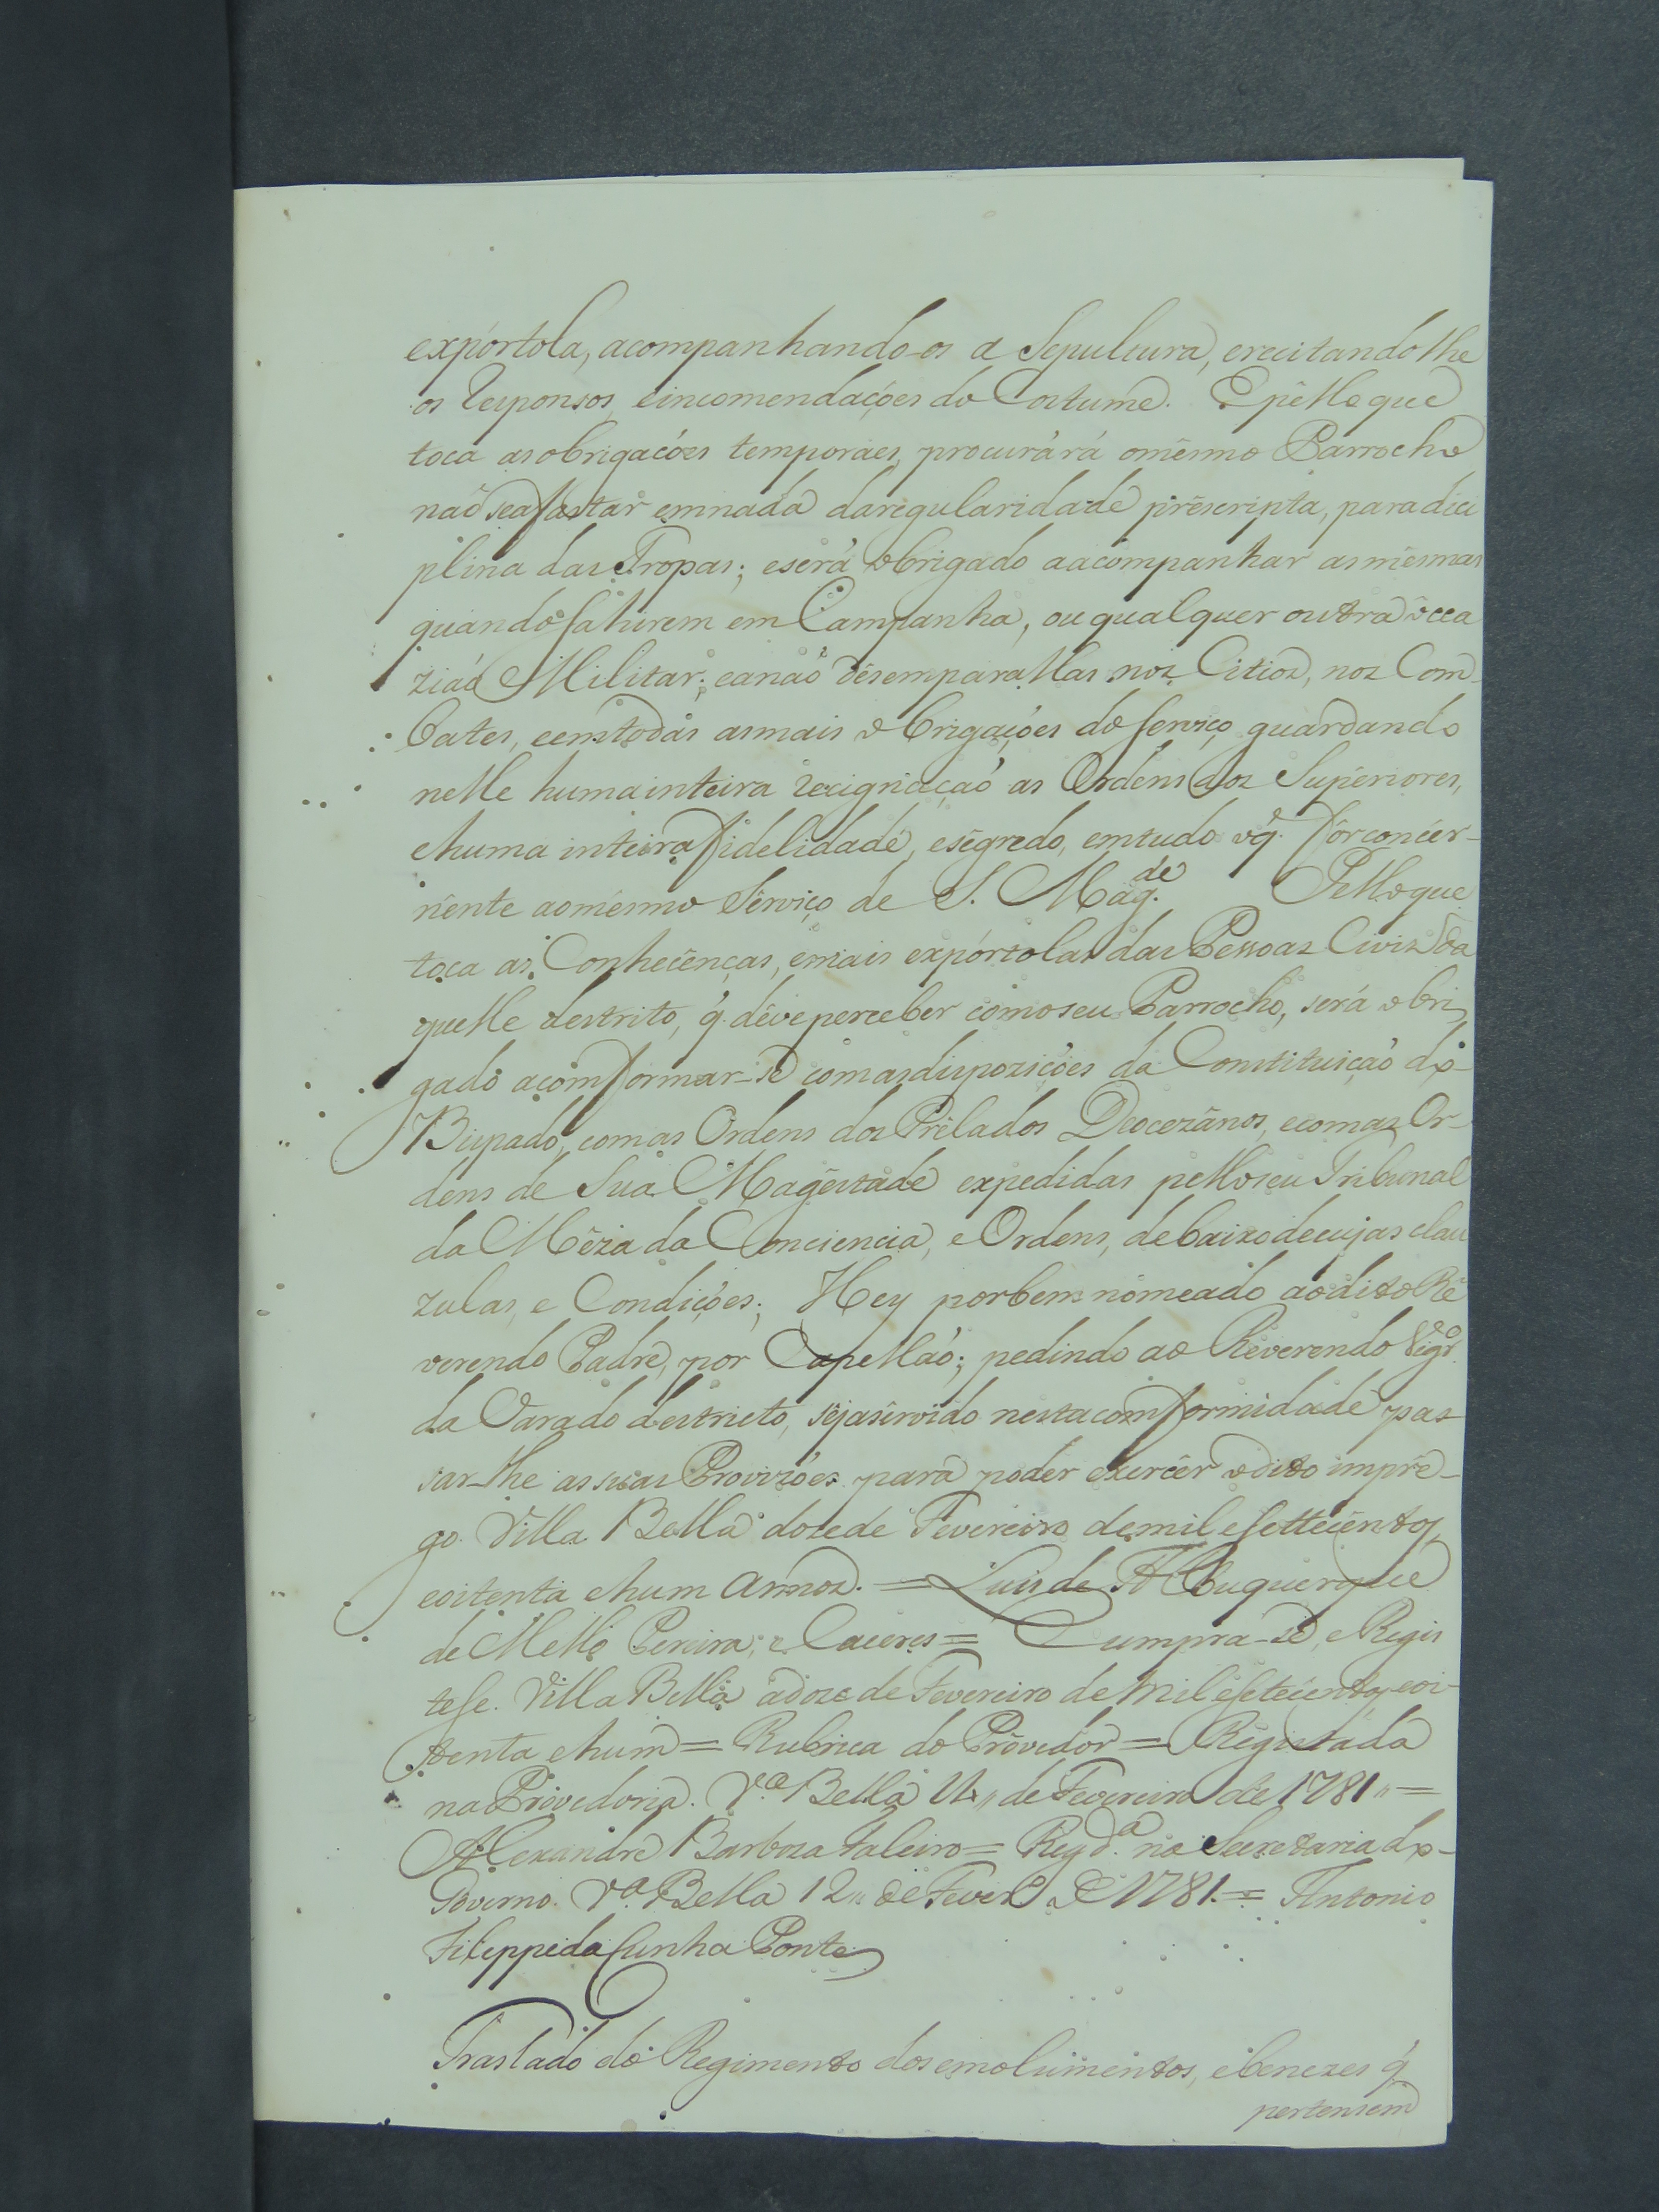 expórtola, acompanhando-os a Sepultura, erecitandolhe
os Responsos, eincomendaçóes do Costume. E pêlloque
toca asobrigaçóes temporaes, procurárá omêsmo Parrocho
naõ seafastar emnada daregularidade prêscripta, paradici
plina das Tropas; eserá obrigado aacompanhar asmêsmas
quando sahirem em Campanha, ou qualquer outra occa
ziaõ Militar; eanaõ desemparallas nos Citios, nos Com-
bates, eemtodas asmais obrigaçóes do serviço guardando
nelle humainteira recignaçaõ as Ordens dos Superiores,
ehuma inteira fidelidade, esêgredo, emtudo oq̃. fôr concer-
nente aomêsmo Sêrviço de S. Mag.de Pelloque
toca as Conhecenças, emais expórtolas das Pessoas Civis da
quelle destrito, q̃. dêveperceber comoseu Parrocho, será obri
gado acomformar-se comasdispoziçóes da Constituiçaõ do
Bispado, comas Ordens dos Prêlados Deocezânos, ecomas Or-
dens de Sua Magêstade expedidas pelloseu Tribunal
da Mêza da Conciencia, e Ordens, debaixodecujas clau
zulas, e Condiçóes; Hey porbem nomeado aodito Re
verendo Padre, por Capellaõ; pedindo ao Reverendo Vigr.o
da Varado destricto, sejasirvido nestacomformidade pas
sar-lhe assuas Provizóes para poder exercêr odito imprê-
go. Villa Bella doze de Fevereiro demil esettecentos,
eoitenta ehum annos. = Luis de Albuquerque
de Mello Pereira, e Caceres = Cumpra-se, e Regis
tese. Villa Bella adoze de Fevereiro de mil esetecentos eoi-
tenta ehum = Rubrica do Provedor = Registada
na Provedoria. V.a Bella 14,, de Fevereiro de 1781,, =
Alexandre Barboza Faleiro = Regd.a na Secretaria do
Governo. V.a Bella 12,, de Fever.o de 1781. = Antonio
Fileppe da Cunha Ponte
Traslado do Regimento dos emolumentos, ebenezes q̃
pertensem